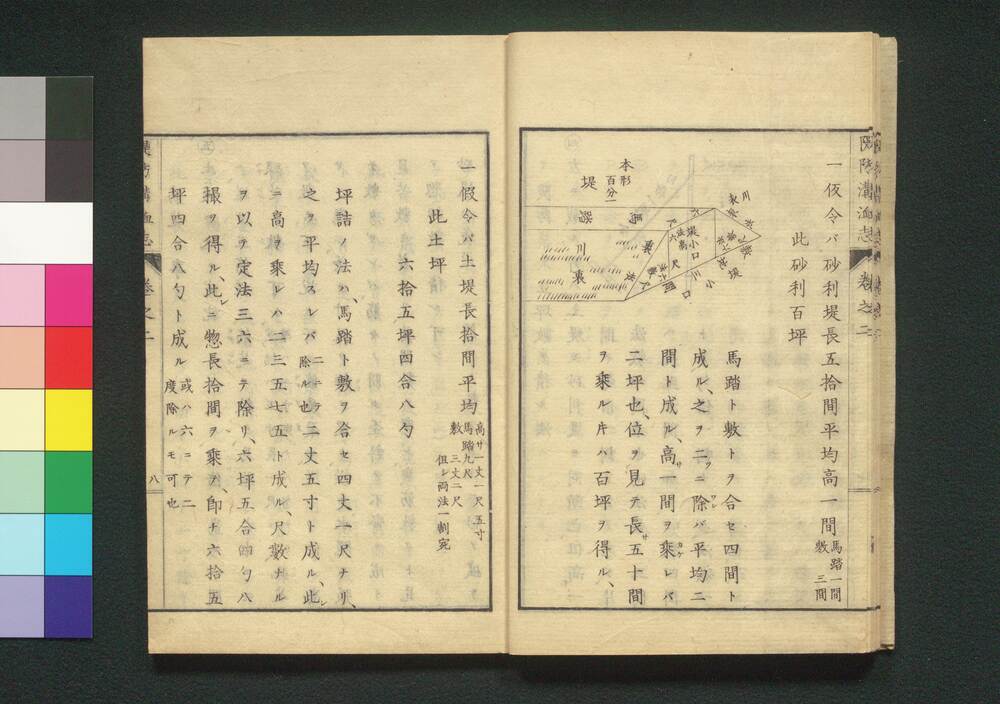 一仮令バ砂利堤長五拾間平均高一間
馬踏一間
敷三間
此砂利百坪
馬踏ト敷トヲ合セ四間ト
成ル、之ヲ二ニ除バ平均二
間ト成ル、高サ一間ヲ乘レバ
二坪也、位ヲ見テ長サ五十間
ヲ乘ル片ハ百坪ヲ得ル、
本形
百分一
堤
馬
踏
川
裏
小口
堤防溝洫志
卷之二
一假令バ土堤長拾間平均
高サ一丈一尺五寸
馬踏九尺
敷三丈二尺
但シ両法一割宛
此土坪 六拾五坪四合八勺
坪詰ノ法ハ、馬踏ト敷ヲ合セ四丈一尺ナリ、
之ヲ平均スレバ二ニテ除ル也二丈五寸ト成ル、此
ニ高ヲ乘レハ二三五七五ト成ル、尺數ナル
ヲ以テ定法三六ニテ除リ、六坪五合四勺八
撮ヲ得ル、此ニ惣長拾間ヲ乘ヲ、即チ六拾五
坪四合八勺ト成ル
或ハ六ニテ二
度除ルモ可也
卷之二
八